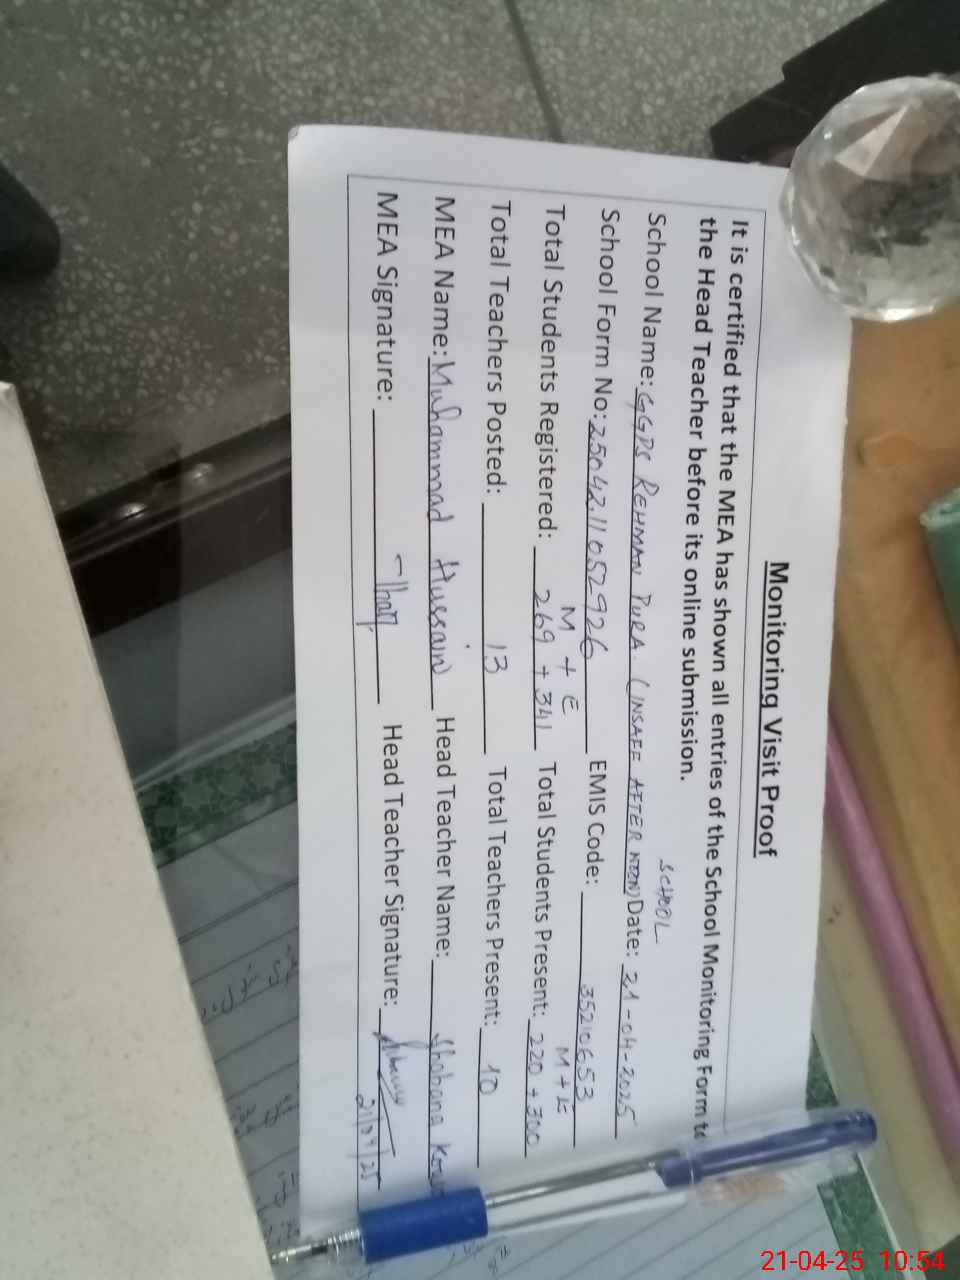 Monitoring Visit Proof
It is certified that the MEA has shown all entries of the School Monitoring Form to
the Head Teacher before its online submission.
SCHOOL
School Name: GGPS REHMAN PURA (INSAFF AFTER NOON) Date: 21-04-2025
School Form No: 25042.11052926 EMIS Code: 35210653
M + E M + E
Total Students Registered: 269 + 341 Total Students Present: 220 + 300
Total Teachers Posted: 13 Total Teachers Present: 10
MEA Name: Muhammad Hussain Head Teacher Name: Shabana
MEA Signature: Head Teacher Signature:
21/04/25
21-04-25 10:54